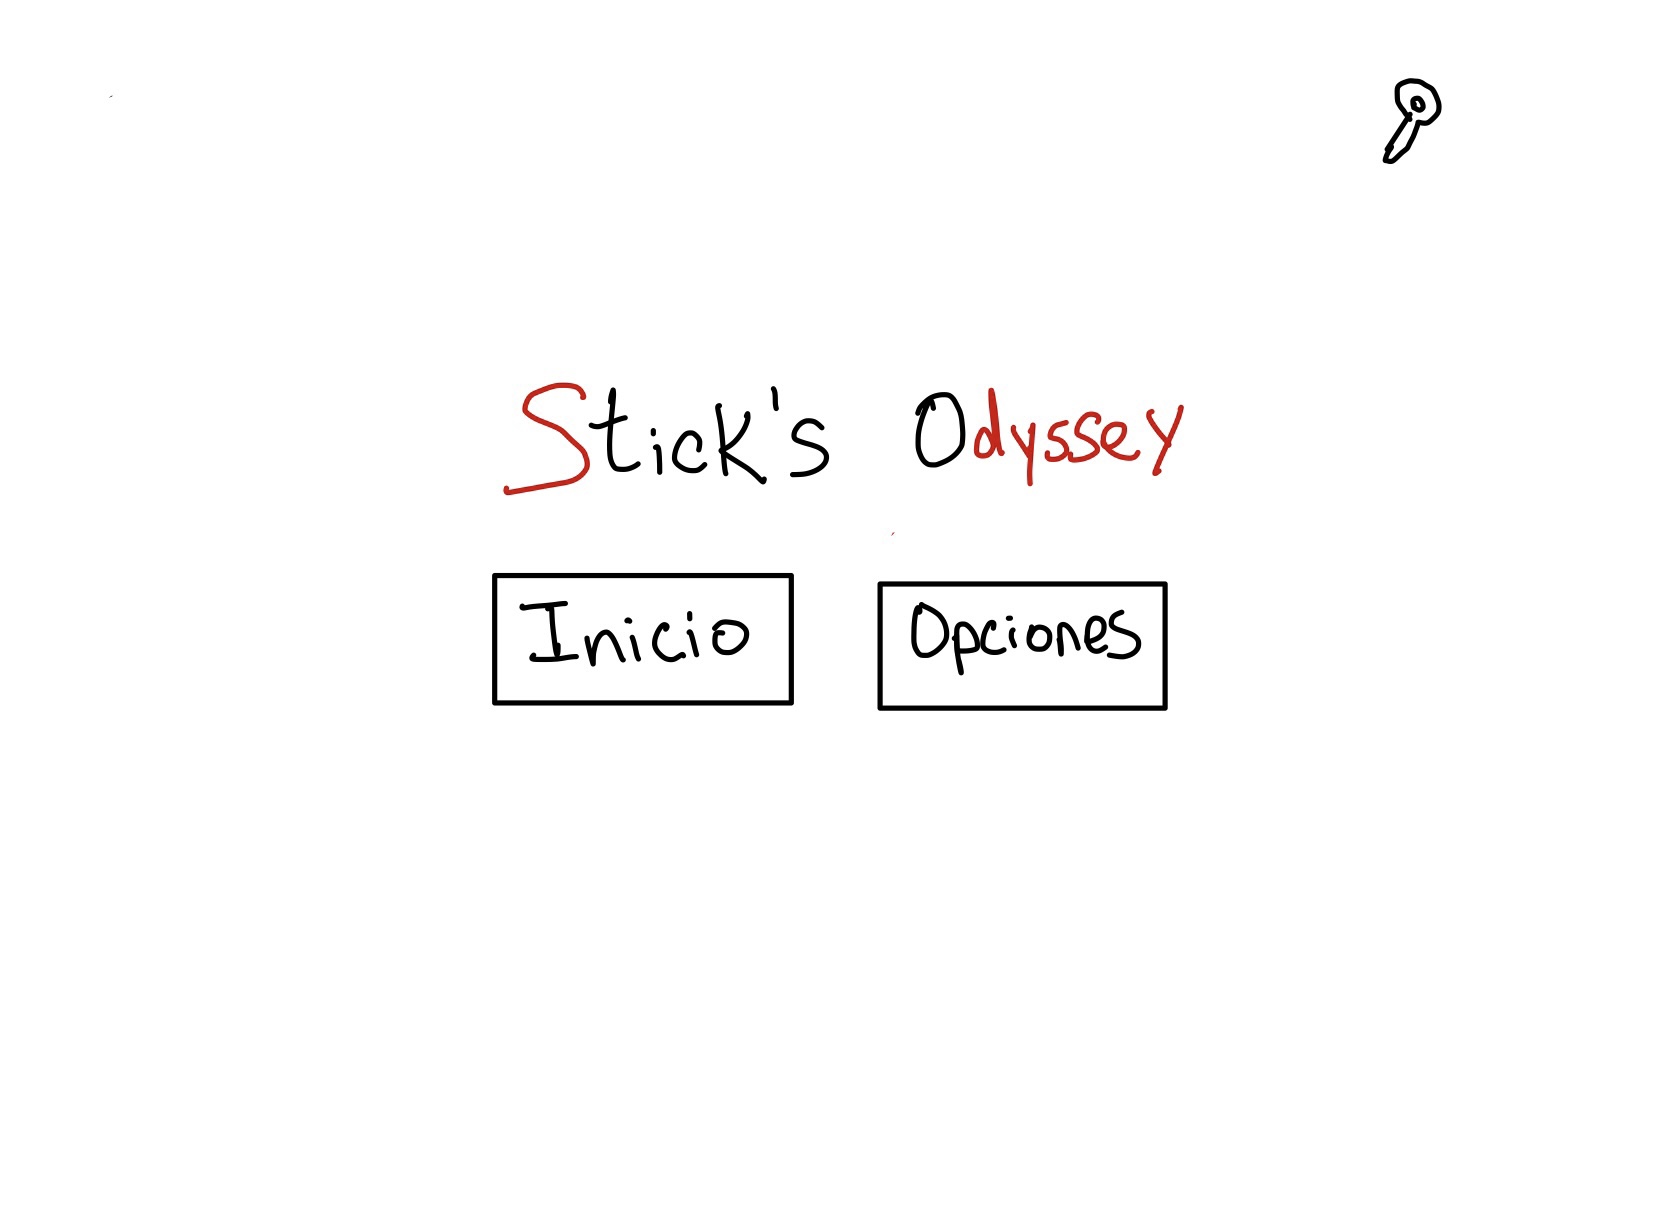 Stick's Odyssey
Inicio
Opciones